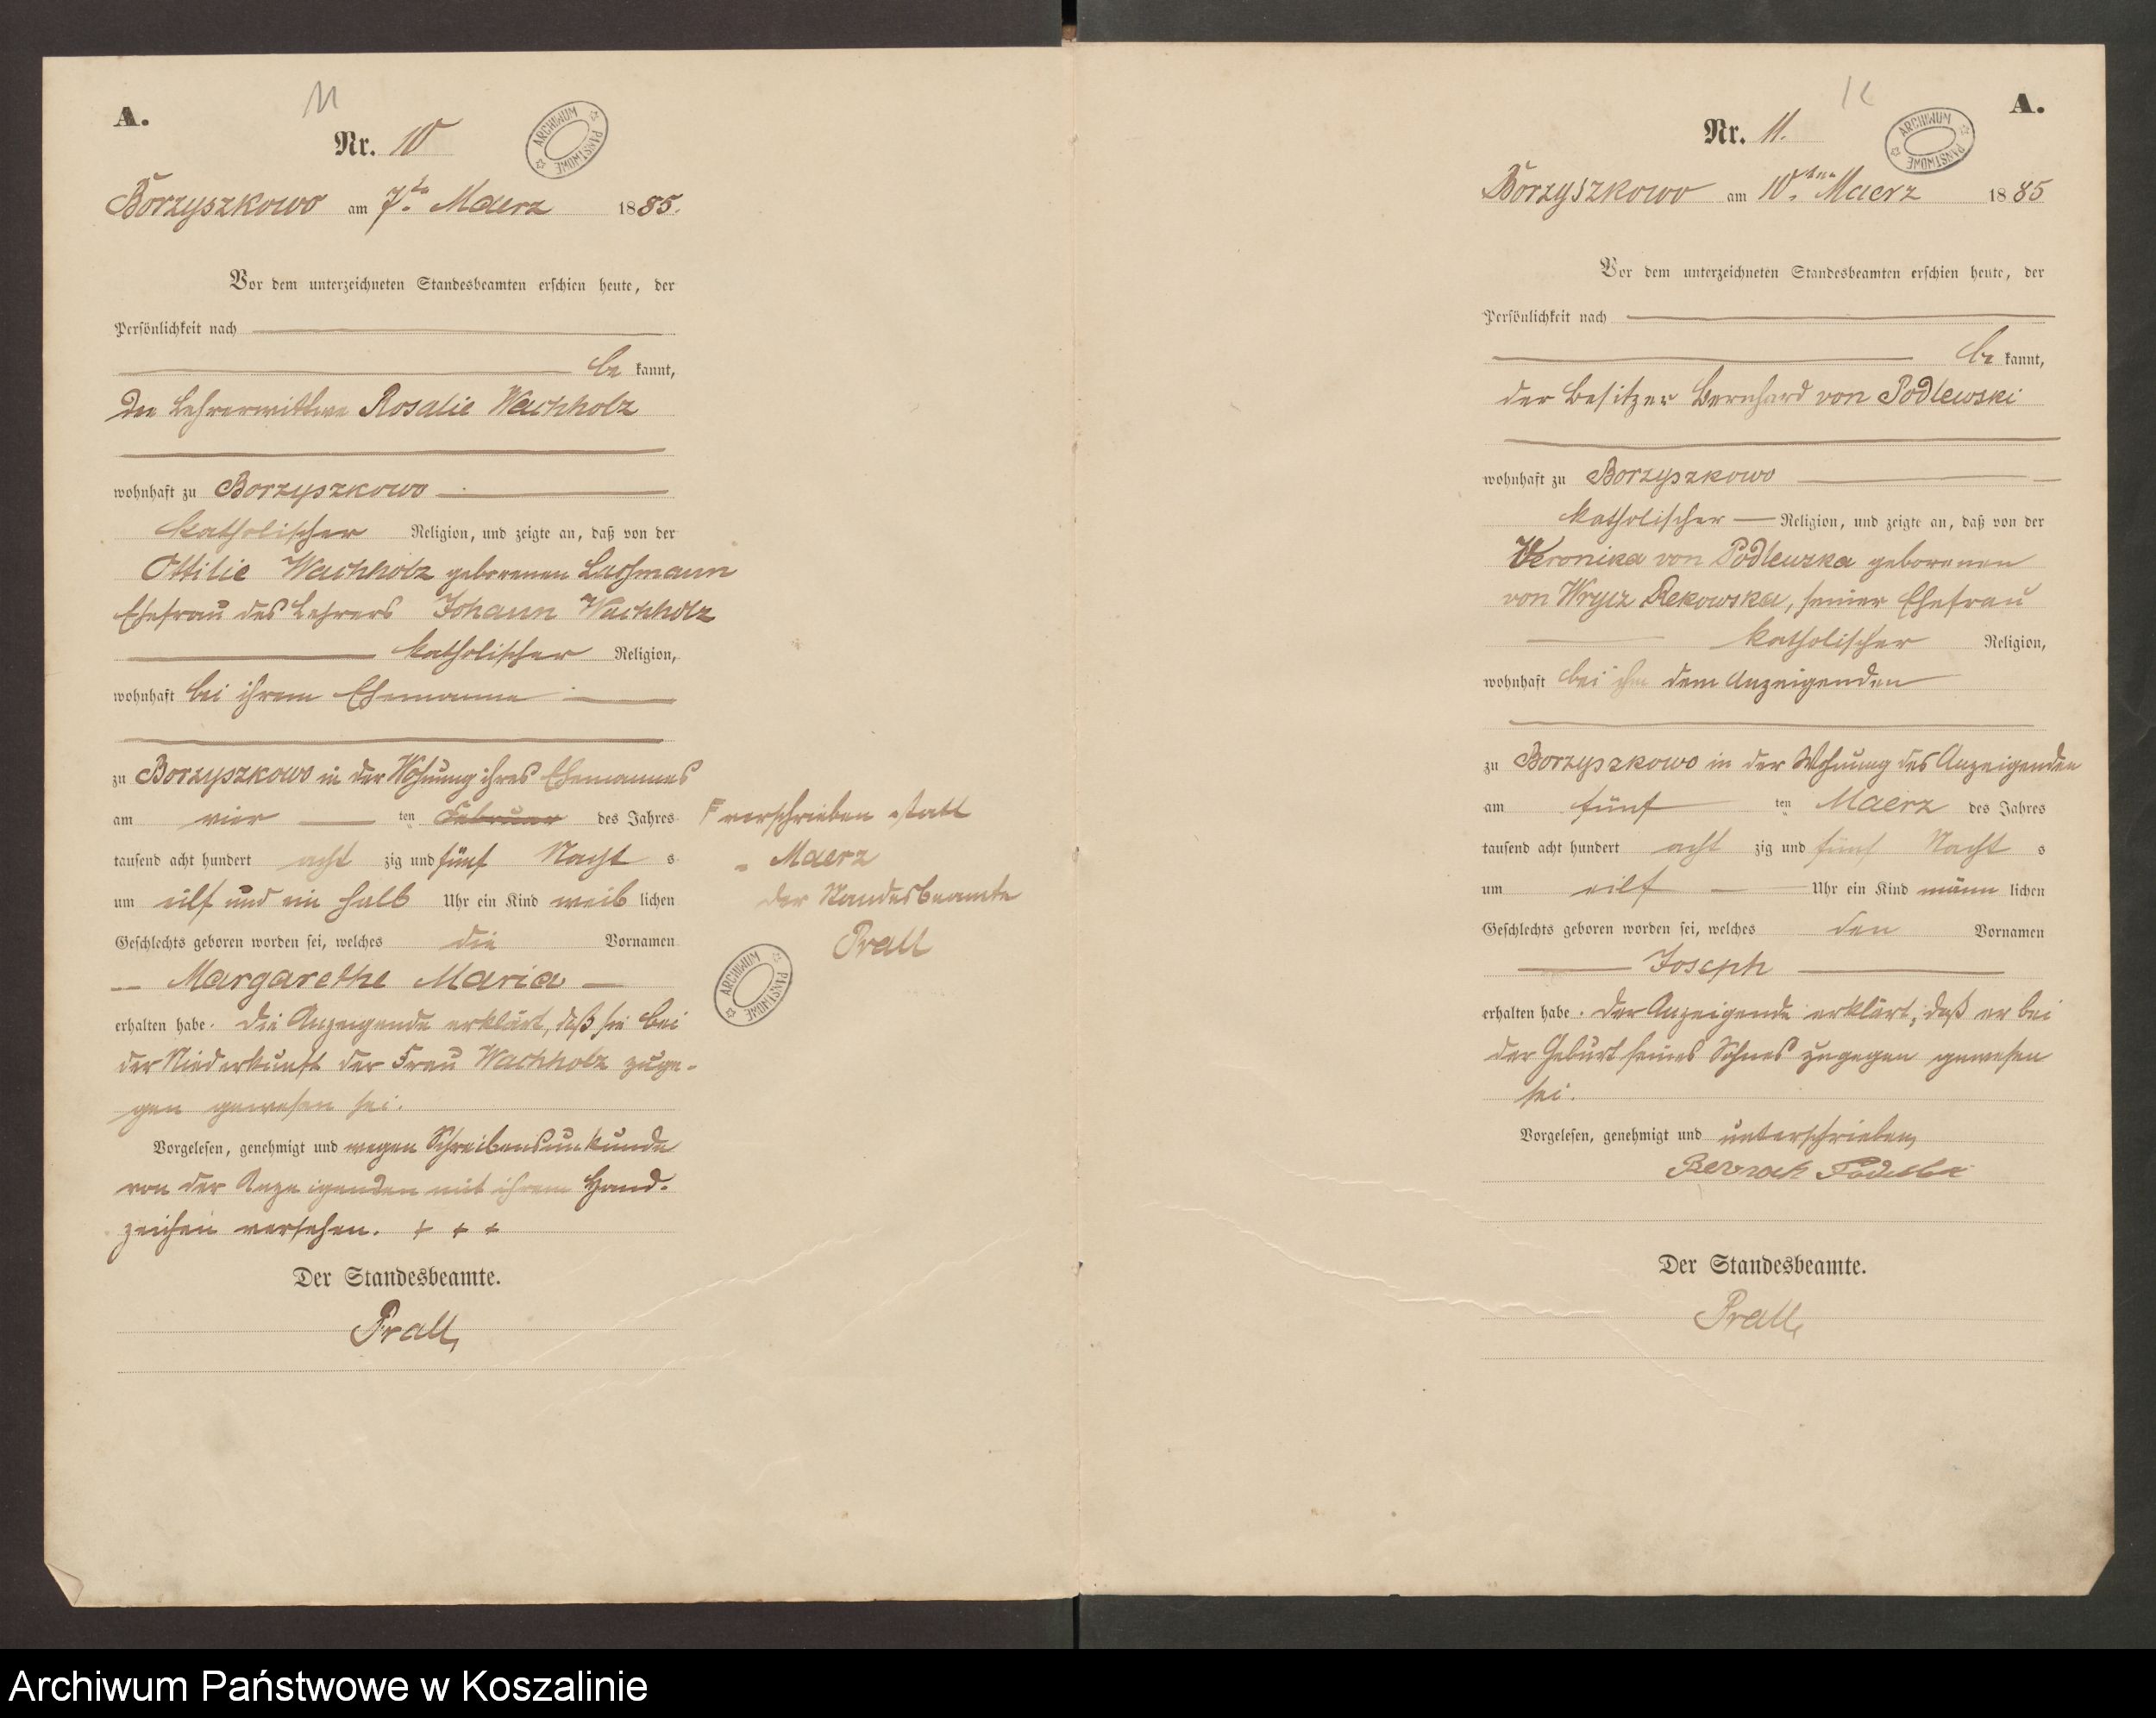 A.
11
Nr. 10
ARCHIWUM PAŃSTWOWE
Borzyszkowo am 7ten Maerz 1885.
Vor dem unterzeichneten Standesbeamten erschien heute, der
Persönlichkeit nach
be kannt,
die Lehrerwittwe Rosalie Wachholz
wohnhaft zu Borzyszkowo
katholischer Religion, und zeigte an, daß von der
Ottilie Wachholz geborenen Lachmann
Ehefrau des Lehrers Johann Wachholz
katholischer Religion,
wohnhaft bei ihrem Ehemanne
zu Borzyszkowo in der Wohnung ihres Ehemannes
am vier ten Februar des Jahres
tausend acht hundert acht zig und fünf Nacht s
um eilf und ein halb Uhr ein Kind weib lichen
Geschlechts geboren worden sei, welches die Vornamen
Margarethe Maria
erhalten habe. Die Anzeigende erklärt, daß sie bei
der Niederkunft der Frau Wachholz zuge-
gen gewesen sei.
Vorgelesen, genehmigt und wegen Schreibensunkunde
von der Anzeigenden mit ihrem Hand-
zeichen versehen. + + +
Der Standesbeamte.
Prall
F verschrieben statt
„ Maerz
der Standesbeamte
Prall
ARCHIWUM PAŃSTWOWE
A.
12
Nr. 11.
ARCHIWUM PAŃSTWOWE
Borzyszkowo am 10ten Maerz 1885
Vor dem unterzeichneten Standesbeamten erschien heute, der
Persönlichkeit nach
be kannt,
der Besitzer Bernhard von Podlewski
wohnhaft zu Borzyszkowo
katholischer Religion, und zeigte an, daß von der
Veronika von Podleuzka geborenen
von Wrycz Rekowska, seiner Ehefrau
katholischer Religion,
wohnhaft bei ihm dem Anzeigenden
zu Borzyszkowo in der Wohnung des Anzeigenden
am fünf ten Maerz des Jahres
tausend acht hundert acht zig und fünf Nacht s
um eilf Uhr ein Kind männ lichen
Geschlechts geboren worden sei, welches den Vornamen
Joseph
erhalten habe. Der Anzeigende erklärt, daß er bei
der Geburt seines Sohnes zugegen gewesen
sei.
Vorgelesen, genehmigt und unterschrieben
Der Standesbeamte.
Prall
Archiwum Państwowe w Koszalinie